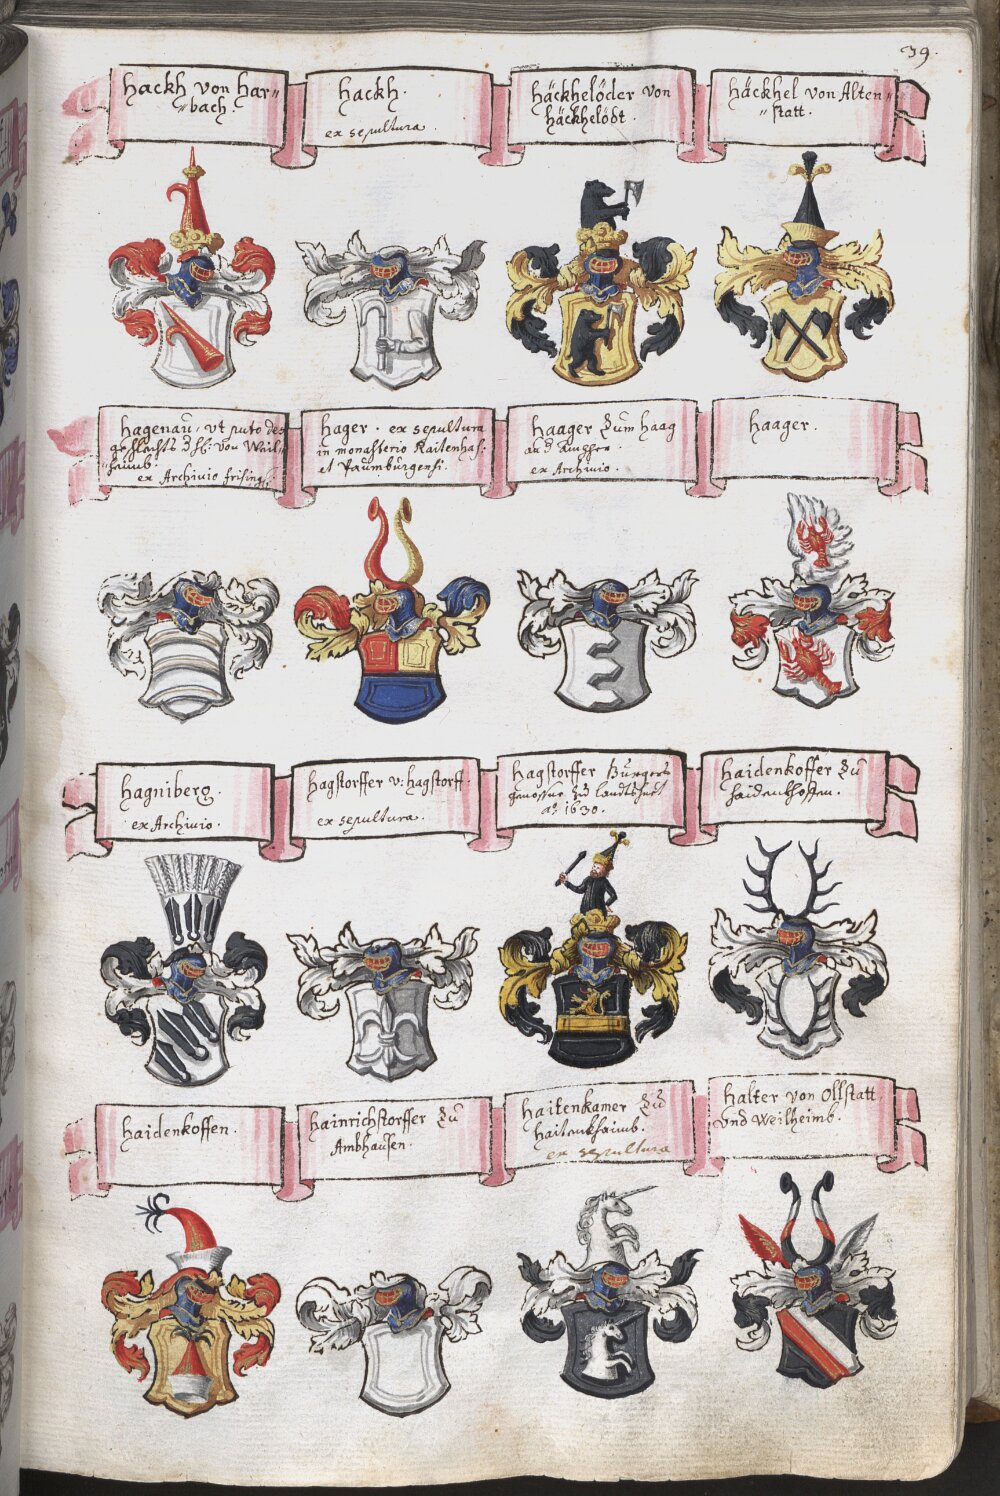 39.
Hackh von Har=
=bach.
Hackh.
ex sepultura.
Häckhelöder von
Häckhelödt.
Häckhel von Alten=
=statt.
Hagenau. ut puto des
geschlechts
=haimb.
ex Archivio frising:
Hager. ex sepultura
in monasterio Raitenhas:
et Paumburgensi.
Haager zum Haag
ex Archivio.
Haager.
Hagniberg.
ex Archivio.
Hagstorffer v: Hagstorff.
ex sepultura.
Hagstorffer Burgers
genosser zu Landtshuet
aō 1630.
Haidenkoffer zu
Haidenkhoffen.
Haidenkoffen.
Hainrichstorffer zu
Ambhausen.
Haitenkamer zu
Haitenkhaimb.
ex sepultura
Halter von Ollstatt
und Weilheimb.